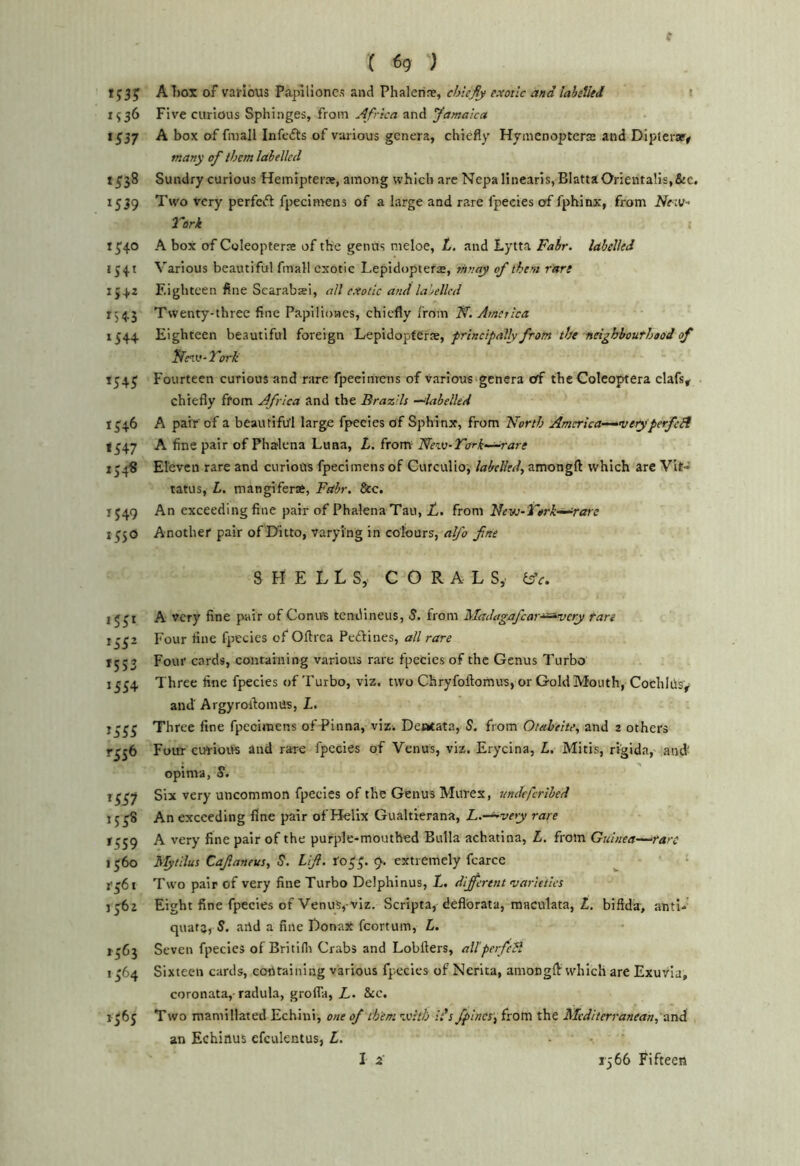 ( 69 )
1535 A box of various Papiliones and Phalenæ, chiefly exotic and labelled
1536 Five curious Sphinges, from Africa and Jamaica
1537 A box of ſmall Inſects of various genera, chiefly Hymenopteræ and Dipteræ,
many of them labelled
1538 Sundry curious Hemipteræ, among which are Nepa linearis, Blatta Orientalis, &c.
1539 Two very perfect ſpecimens of a large and rare ſpecies of ſphinx, from New-
York
1540 A box of Coleopteræ of the genus meloe, L. and Lytta Fabr. labelled
1541 Various beautiful ſmall exotic Lepidopteræ, many of them rare
1542 Eighteen fine Scarabæi, all exotic and labelled
1543 Twenty-three fine Papiliones, chiefly from N. America
1544 Eighteen beautiful foreign Lepidopteræ, principally from the neighbourhood of
New-York
1545 Fourteen curious and rare ſpecimens of various genera of the Coleoptera claſs,
chiefly from Africa and the Brazils —labelled
1546 A pair of a beautiful large ſpecies of Sphinx, from North America—very perfect
1547 A fine pair of Phalena Luna, L. from New-York—rare
1548 Eleven rare and curious ſpecimens of Curculio, labelled, amongſt which are Vit-
tatus, L. mangiferæ, Fabr. &c.
1549 An exceeding fine pair of Phalena Tau, L. from New-York—rare
1550 Another pair of Ditto, varying in colours, alſo fine
SHELLS, CORALS, &c.
1551 A very fine pair of Conus tendineus, S. from Madagaſcar—very rare
1552 Four fine ſpecies of Oſtrea Pectines, all rare
1553 Four cards, containing various rare ſpecies of the Genus Turbo
1554 Three fine ſpecies of Turbo, viz. two Chryſoſtomus, or Gold Mouth, Cochlus,
and Argyroſtomus, L.
1555 Three fine ſpecimens of Pinna, viz. Dentata, S. from Otaheite, and 2 others
1556 Four curious and rare ſpecies of Venus, viz. Erycina, L. Mitis, rigida, and
opima, S.
1557 Six very uncommon ſpecies of the Genus Murex, undeſcribed
1558 An exceeding fine pair of Helix Gualtierana, L.—very rare
1559 A very fine pair of the purple-mouthed Bulla achatina, L. from Guinea—rare
1560 Mytilus Caſtaneus, S. Liſt. 1055. 9. extremely ſcarce
1561 Two pair of very fine Turbo Delphinus, L. different varieties
1562 Eight fine ſpecies of Venus, viz. Scripta, deflorata, maculata, L. bifida, anti-
quata, S. and a fine Donax ſcortum, L.
1563 Seven ſpecies of Britiſh Crabs and Lobſters, all perfect
1564 Sixteen cards, containing various ſpecies of Nerita, amongſt which are Exuvia,
coronata, radula, groſſa, L. &c.
1565 Two mamillated Echini, one of them with it's ſpines, from the Mediterranean, and
an Echinus eſculentus, L.
I 2 1566 Fifteen